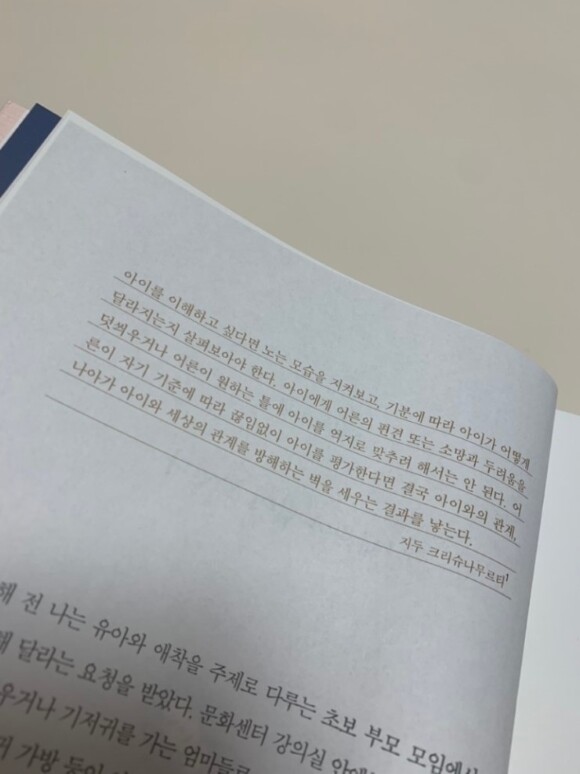 아이를 이해하고 싶다면 노는 모습을 지켜보고, 기분에 따라 아이가 어떻게
달라지는지 살펴보아야 한다. 아이에게 어른의 편견 또는 소망과 두려움을
덧씌우거나 어른이 원하는 틀에 아이를 억지로 맞추려 해서는 안 된다. 어
른이 자기 기준에 따라 끊임없이 아이를 평가한다면 결국 아이와의 관계,
나아가 아이와 세상의 관계를 방해하는 벽을 세우는 결과를 낳는다.
지두 크리슈나무르티1
해 전 나는 유아와 애착을 주제로 다루는 초보 부모 모임에서
해 달라는 요청을 받았다. 문화센터 강의실 안에
우거나 기저귀를 가는 엄마들로
가방 등이